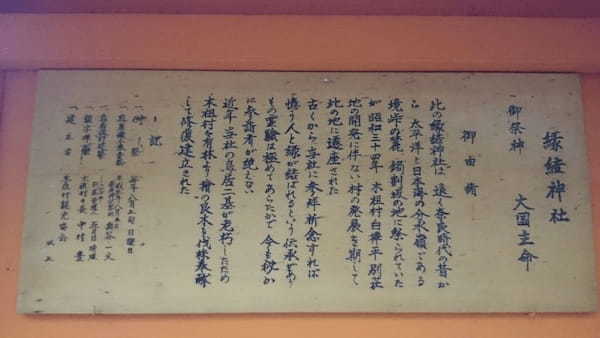 縁結神社
御祭神　大国主命
御由緒
此の縁結神社は、遠く奈良時代の昔か
ら太平洋と日本海の分水嶺である
境峠の麓、鍋割坂の地に祭られていた
が昭和三十四年、木祖村白樺平別荘
地の開発に伴ない村の発展を期して
此の地に遷座された
古くから、当社に参拝祈念すれば
慕う人と縁が結ばれるという伝承あり
その霊験は極めてあらたかで今も密か
に参詣者が絶えない
近年、当社の鳥居一基が老朽したため
木祖村々有林より檜の良木を伐採奉献
して修復建立された
記
一、例祭　毎年八月上旬日曜日
奥谷一文
木祖村々長　中村豊
一、建立者　木祖村観光協会
以上